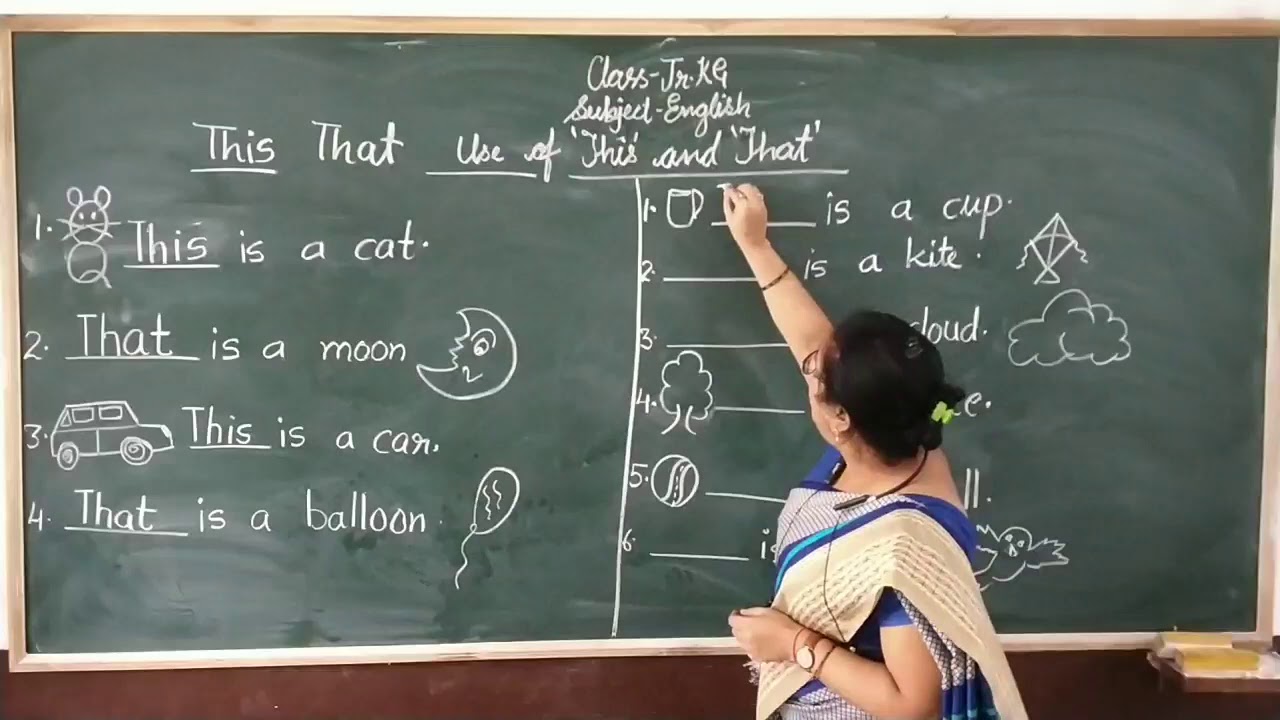 Class-Jr.KG
Subject-English
This That Use of 'This' and 'That'
1. This is a cat.
2. That is a moon
3. This is a car.
4. That is a balloon.
1. ______ is a cup.
2. ______ is a kite.
3. ______ cloud.
4. ______
5. ______
6. ______ is